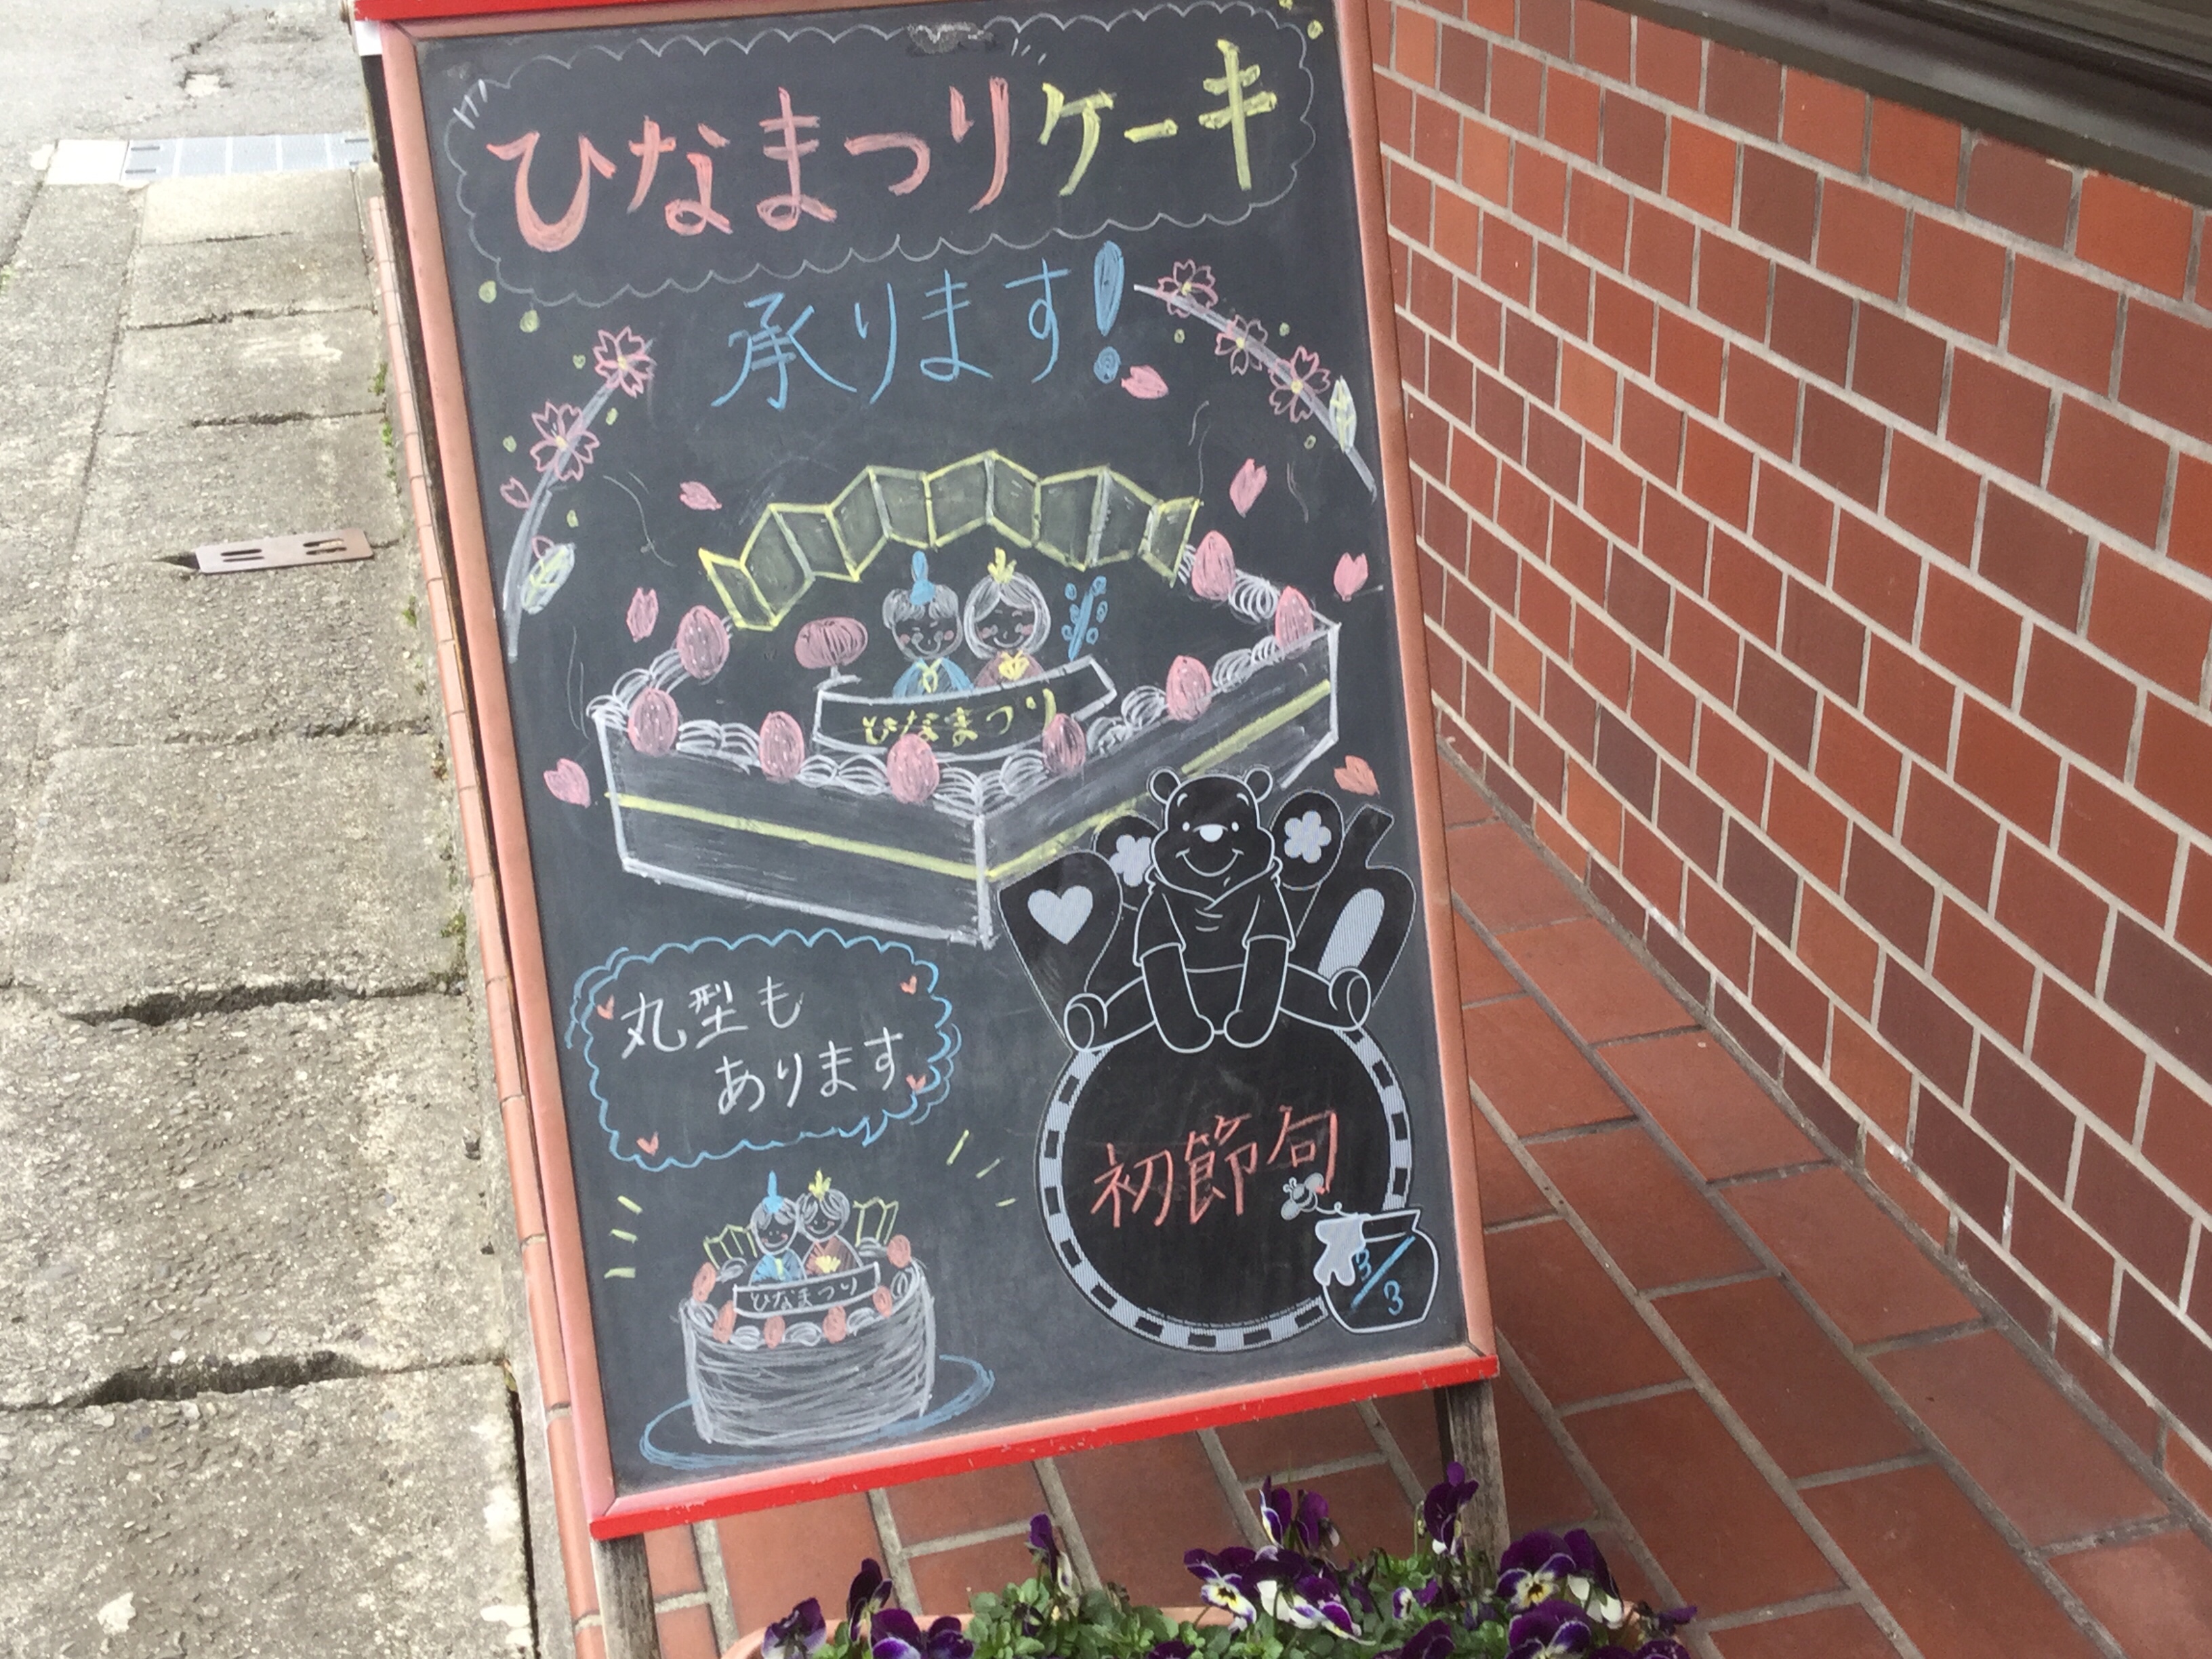 ひなまつりケーキ
承ります!
ひなまつり
丸型も
あります
初節句
3/3
ひなまつり